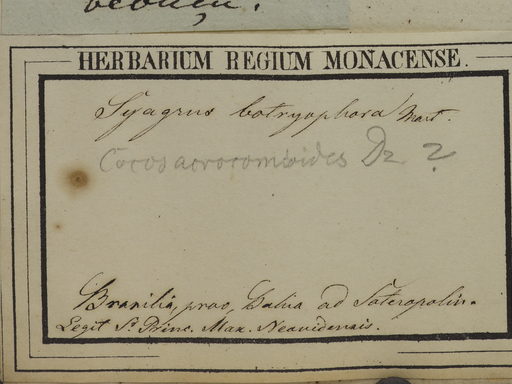 HERBARIUM REGIUM MONACENSE.
Syagrus botryophora Mart.
Cocos acrocomioides Dr. ?
Brasilia, prov. Bahia ad Soteropolin.
Legit S. Princ. Max. Neovidensis.